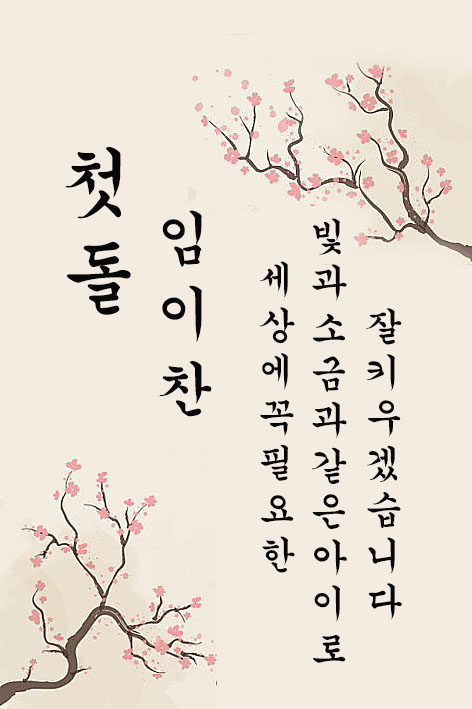 첫돌
임이찬
세상에꼭필요한
빛과소금과같은아이로
잘키우겠습니다